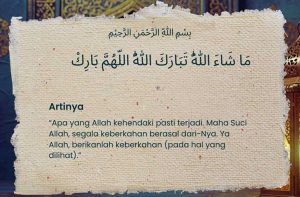 بِسْمِ اللهِ الرَّحْمَنِ الرَّحِيْمِ
مَا شَاءَ اللهُ تَبَارَكَ اللهُ اللّٰهُمَّ بَارِكْ
Artinya
“Apa yang Allah kehendaki pasti terjadi. Maha Suci
Allah, segala keberkahan berasal dari-Nya. Ya
Allah, berikanlah keberkahan (pada hal yang
dilihat).”